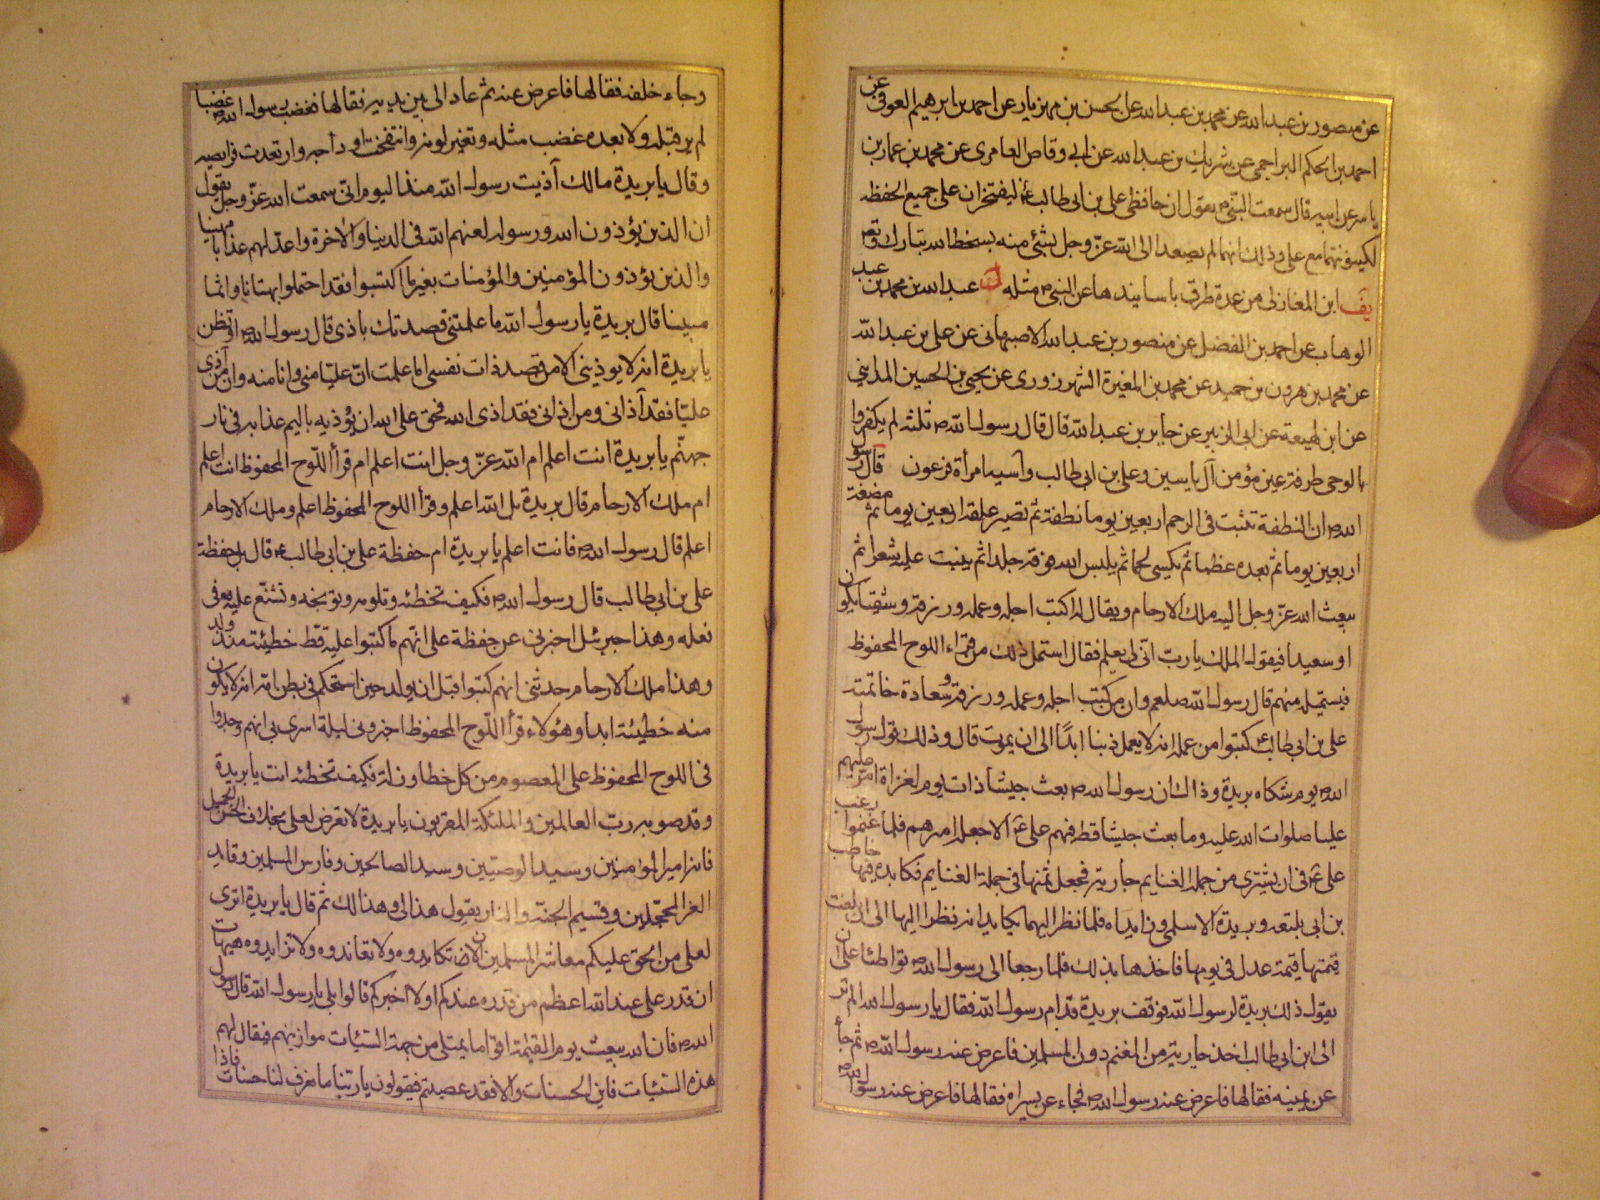 عن منصور بن عبد الله عن محمد بن عبد الله عن الحسن بن مهزيار عن احمد بن ابرهيم العوفى عن
احمد بن الحكم البراجمى عن شريك بن عبد الله عن ابى وقاص العامرى عن محمد بن عمار بن
ياسر عن ابيه قال سمعت النبى ص يقول ان حافظى على بن ابى طالب ليفتخران على جميع الحفظة
لكينونتهما مع على وذلك انهما لم يصعدا الى الله عز وجل بشئ منه يسخط الله تبارك وتع
يف ابن المغازلى من عدة طرق باسانيدها عن النبى ص مثله عبد الله بن محمد بن عبد
الوهاب عن احمد بن الفضل عن منصور بن عبد الله الاصبهانى عن على بن عبد الله
عن محمد بن هرون بن حميد عن محمد بن المغيرة الشهرزورى عن يحيى بن الحسين المداينى
عن ابن لهيعة عن ابى الزبير عن جابر بن عبد الله قال قال رسول الله ص ثلثة لم يكفروا
بالوحى طرفة عين مؤمن آل ياسين وعلى بن ابى طالب وآسية امرأة فرعون قال رسول
الله ص ان النطفة تثبت فى الرحم اربعين يوما نطفة ثم تصير علقة اربعين يوما ثم مضغة
اربعين يوما ثم بعده عظما ثم يكسى لحما ثم يلبس الله فوقه جلدا ثم ينبت عليه شعرا ثم
يبعث الله عز وجل اليه ملك الارحام ويقال له اكتب اجله وعمله ورزقه وشقيا يكون
او سعيدا فيقول الملك يا رب انى لى بعلم فقال استمل ذلك من قراء اللوح المحفوظ
فيستمليه منهم قال رسول الله صلعم وان من كتب اجله وعمله ورزقه وسعادة خاتمته
على بن ابى طالب كتبوا من عمله انه لا يعمل ذنبا ابدًا الى ان يموت قال وذلك قول رسول
الله ص يوم شكاه بريدة وذاك ان رسول الله ص بعث جيشا ذات يوم لغزاة امر عليهم
عليا صلوات الله عليه وما بعث جيشا قط فيهم على ع الا جعله اميرهم فلما غنموا رغب
على ع فى ان يشترى من جملة الغنايم جارية فجعل ثمنها فى جملة الغنايم فكايده فيها حاطب
بن ابى بلتعة وبريدة الاسلمى وزايداه فلما نظر اليهما يكايدانه نظر اليها الى ان بلغت
قيمتها قيمة عدل فى يومها فاخذها بذلك فلما رجعا الى رسول الله ص تواطئا على ان
يقول ذلك بريدة لرسول الله فوقف بريدة قدام رسول الله فقال يا رسول الله الم تر
الى ابن ابى طالب اخذ جارية من المغنم دون المسلمين فاعرض عنه رسول الله ص ثم جأ
عن يمينه فقالها فاعرض عنه رسول الله ص فجاء عن يسراه فقالها فاعرض عنه رسول الله ص
وجاء خلفه فقالها فاعرض عنه ثم عاد الى بين يديه فقالها فغضب رسول الله ص غضبا
لم ير قبله ولا بعده غضب مثله وتغير لونه وانتفخت اوداجه وارتعدت فرايصه
وقال يا بريدة مالك آذيت رسول الله منذ اليوم انى سمعت الله عز وجل يقول
ان الذين يؤذون الله ورسوله لعنهم الله فى الدنيا والاخرة واعد لهم عذابا مهينا
والذين يؤذون المؤمنين والمؤمنات بغير ما اكتسبوا فقد احتملوا بهتانا واثما
مبينا قال بريدة يا رسول الله ما علمتنى قصدتك باذى قال رسول الله ص اوتظن
يا بريدة انه لا يوذينى الا من قصد ذات نفسى اما علمت ان عليّا منى وانا منه وان من آذى
عليّا فقد آذانى ومن اذانى فقد اذى الله فحق على الله ان يؤذيه باليم عذابه فى نار
جهنم يا بريدة انت اعلم ام الله عز وجل انت اعلم ام قرأ اللوح المحفوظ انت اعلم
ام ملك الارحام قال بريدة بل الله اعلم وقرأ اللوح المحفوظ اعلم وملك الارحام
اعلم قال رسول الله ص فانت اعلم يا بريدة ام حفظة على بن ابى طالب ع قال بل حفظة
على بن ابى طالب قال رسول الله ص فكيف تخطئه وتلومه وتوبخه وتشنع عليه فى
فعله وهذا جبرئيل اخبرنى عن حفظة على انهم ما كتبوا عليه قط خطيئة منذ ولد
وهذا ملك الارحام حدثنى انهم كتبوا قبل ان يولد حين استحكم فى بطن امه انه لا يكون
منه خطيئة ابدا وهؤلاء قرأ اللوح المحفوظ اخبرونى ليلة اسرى بى انهم وجدوا
فى اللوح المحفوظ على المعصوم من كل خطا وزلة فكيف تخطئه انت يا بريدة
وقد صوبه رب العالمين والملئكة المقربون يا بريدة لا تعرض لعلى بخلاف الحسن الجميل
فانه امير المؤمنين وسيد الوصيين وسيد الصالحين وفارس المسلمين وقايد
الغر المحجلين وقسيم الجنة والنار يقول هذا لى وهذا لك ثم قال يا بريدة اترى
لعلى من الحق عليكم معاشر المسلمين ان لا تكايدوه ولا تعاندوه ولا تزايدوه هيهات
ان قدر على عند الله اعظم من قدره عندكم اولا اخبركم قالوا بلى يا رسول الله قال رسول
الله ص فان الله يبعث يوم القيمة اقواما يمتلى من جهة السيئات موازينهم فيقال لهم
هذه السيئات فاين الحسنات والا فقد عصيتم فيقولون يا ربنا ما نعرف لنا حسنات فاذا